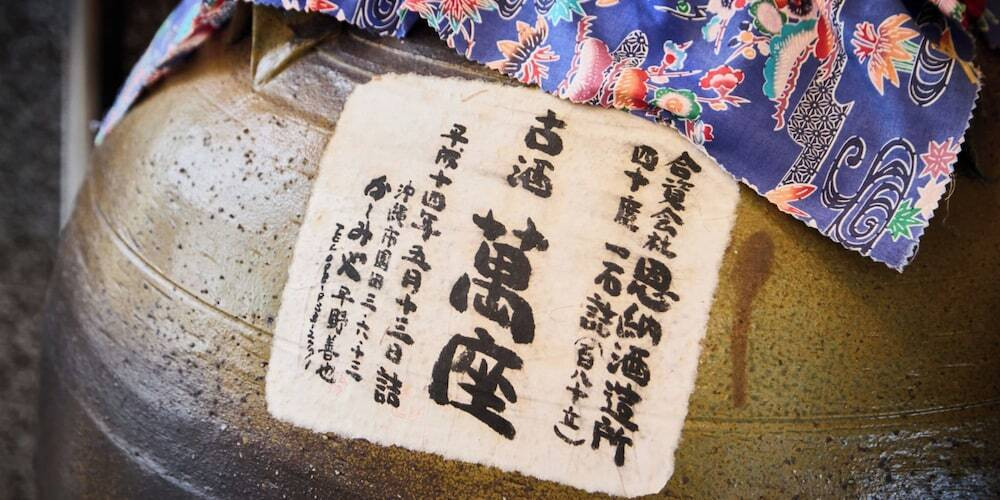 合資会社 恩納酒造所
四十度 一石詰(百八十立)
古酒 萬座
平成十四年五月十三日詰
沖縄市園田三・六・十二
かーみやー 早野善也